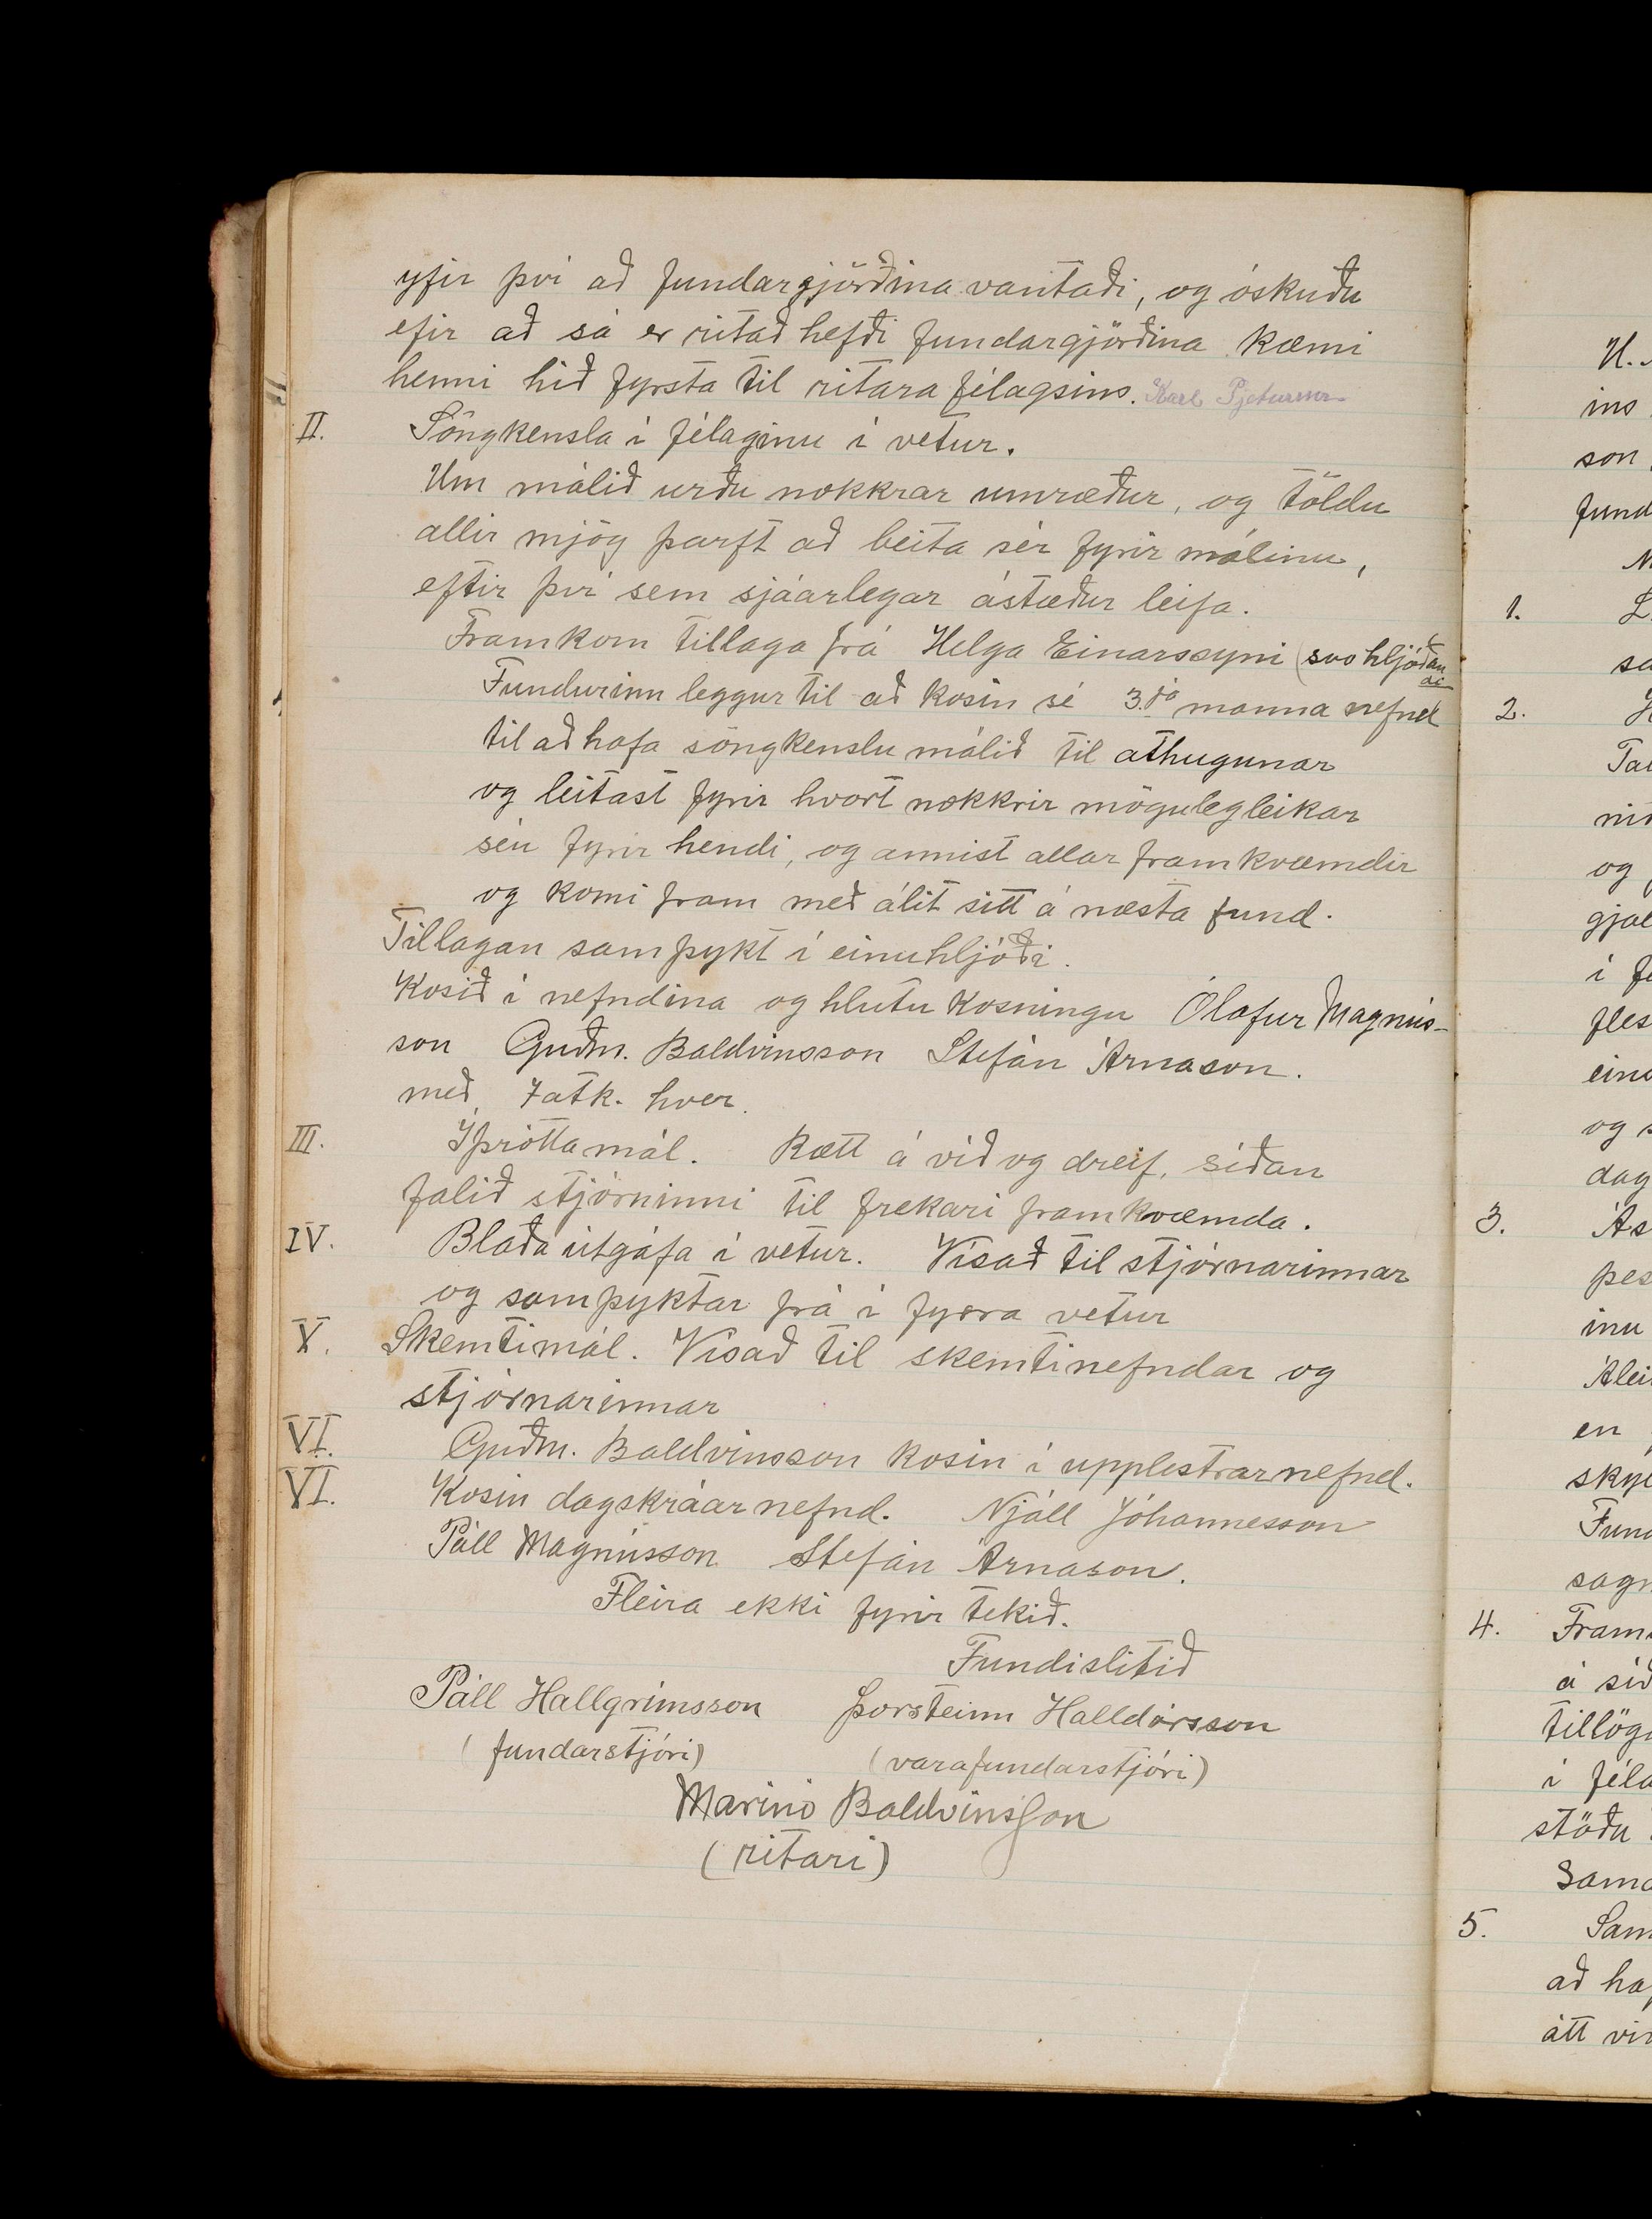 yfir því að fundargjörðina vantaði, og óskuðu
efir að sá er ritað hefði fundargjörðina kæmi
henni hið fyrsta til ritara félagsins. Karl Pjetursson
II. Söngkensla í félaginu í vetur.
Um málið urðu nokkrar umræður, og töldu
allir mjög þarft að beita sér fyrir málinu,
eftir því sem sjáarlegar ástæður leifa.
Framkom tillaga frá Helga Einarssyni (svohljóðandi
Fundurinn leggur til að kosin sé 3.ja manna nefnd
til að hafa söngkenslu málið til athugunar
og leitast fyrir hvort nokkrir mögulegleikar
séu fyrir hendi, og annist allar framkvæmdir
og komi fram með álit sitt á næsta fund.
Tillagan samþykt í einuhljóði.
Kosið í nefndina og hlutu kosningu Ólafur Magnús-
son Guðm. Baldvinsson Stefán Árnason.
með 7 atk. hver.
III. Íþróttamál. Rætt á víð og dreif, síðan
falið stjórninni til frekari framkvæmda.
IV. Blaða útgáfa í vetur. Vísað til stjórnarinnar
og samþyktar frá í fyrra vetur
V. Skemtimál. Vísað til skemtinefndar og
stjórnarinnar
VI. Guðm. Baldvinsson kosin í upplestrarnefnd.
VI. Kosin dagskráarnefnd. Njáll Jóhannesson
Páll Magnússon Stefán Árnason.
Fleira ekki fyrir tekið.
Fundislitið
Páll Hallgrímsson Þorsteinn Halldórsson
(fundarstjóri) (varafundarstjóri)
Marinó Baldvinsson
(ritari)
ins
son
fund
1.
2.
og
í
og
dag
3.
inu
en
4.
á
í
5.
að
átt